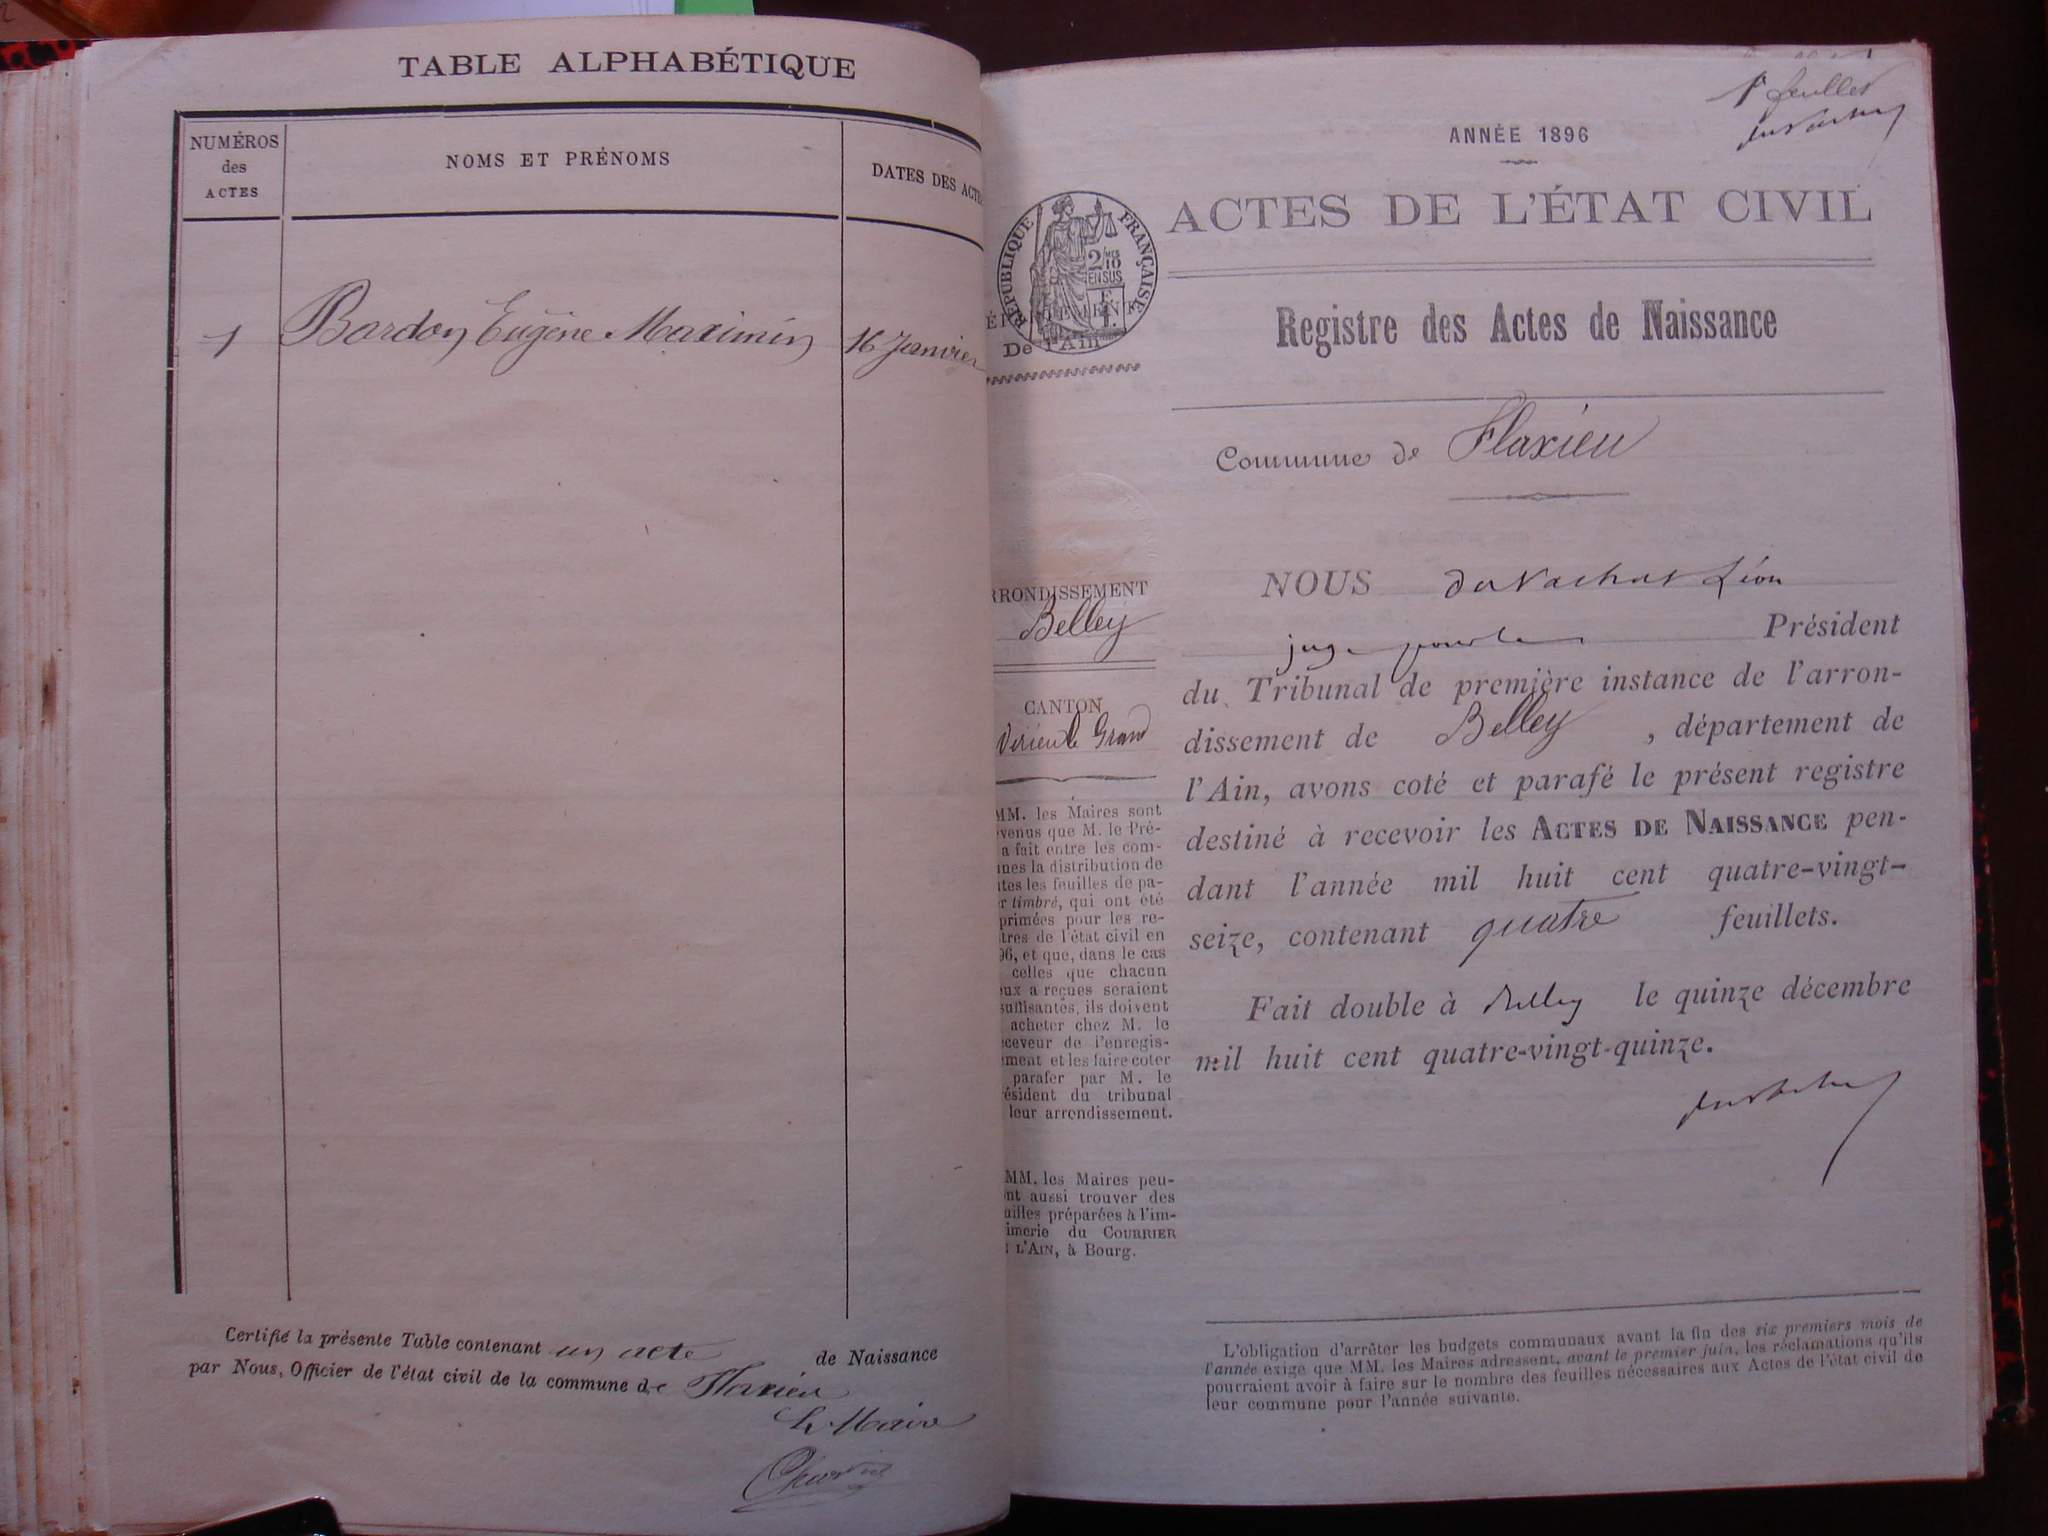 TABLE ALPHABÉTIQUE
NUMÉROS
des
ACTES
NOMS ET PRÉNOMS
DATES DES ACTE
1 Bardon Eugène Maximin 16 Janvier
Certifié la présente Table contenant un acte de Naissance
par Nous, Officier de l'état civil de la commune de Flaxieu
Le Maire
1er feuillet
ANNÉE 1896
ACTES DE L'ÉTAT CIVIL
RÉPUBLIQUE FRANÇAISE
2/10
EN SUS
De l'Ain
Registre des Actes de Naissance
Commune de Flaxieu
RRONDISSEMENT
Belley
CANTON
Virieu le Grand
MM. les Maires sont
venus que M. le Pré-
a fait entre les com-
unes la distribution de
tes les feuilles de pa-
r timbré, qui ont été
primées pour les re-
tres de l'état civil en
96, et que, dans le cas
celles que chacun
eux a reçues seraient
suffisantes, ils doivent
acheter chez M. le
ceveur de l'enregis-
ement et les faire coter
parafer par M. le
ésident du tribunal
leur arrondissement.
MM. les Maires peu-
nt aussi trouver des
uilles préparées à l'im-
imerie du COURRIER
L'AIN, à Bourg.
NOUS Léon
juge pour le Président
du Tribunal de première instance de l'arron-
dissement de Belley, département de
l'Ain, avons coté et parafé le présent registre
destiné à recevoir les ACTES DE NAISSANCE pen-
dant l'année mil huit cent quatre-vingt-
seize, contenant quatre feuillets.
Fait double à Belley le quinze décembre
mil huit cent quatre-vingt-quinze.
L'obligation d'arrêter les budgets communaux avant la fin des six premiers mois de
l'année exige que MM. les Maires adressent, avant le premier juin, les réclamations qu'ils
pourraient avoir à faire sur le nombre des feuilles nécessaires aux Actes de l'état civil de
leur commune pour l'année suivante.